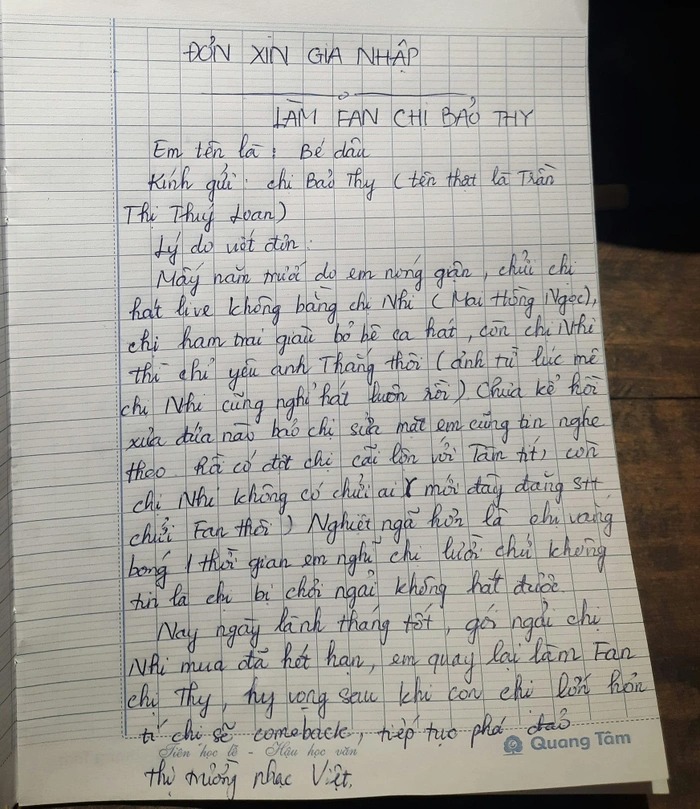 ĐƠN XIN GIA NHẬP
LÀM FAN CHỊ BẢO THY
Em tên là : Bé dâu
Kính gửi : chị Bảo Thy (tên thật là Trần
Thị Thuý Loan)
Lý do viết đơn :
Mấy năm trước do em nóng giận, chửi chị
hát live không bằng chị Nhi (Mai Hồng Ngọc),
chị ham trai giàu bỏ bê ca hát, còn chị Nhi
thì chỉ yêu anh Thắng thôi (ảnh từ lúc mê
chị Nhi cũng nghỉ hát luôn rồi). Chưa kể hồi
xưa đứa nào bảo chị sửa mặt em cũng tin nghe
theo. Rồi có đợt chị cãi lộn với Tâm tít, còn
chị Nhi không có chửi ai (mới đây đăng stt
chửi Fan thôi) Nghiệt ngã hơn là chị vang
bóng 1 thời gian em nghĩ chị lười chứ không
tin là chị bị chơi ngải không hát được.
Nay ngày lành tháng tốt, gói ngải chị
Nhi mua đã hết hạn, em quay lại làm Fan
chị Thy, hy vọng sau khi con chị lớn hơn
tí chị sẽ comeback, tiếp tục phá đảo
Tiên học lễ - Hậu học văn
Quang Tâm
thị trường nhạc Việt.